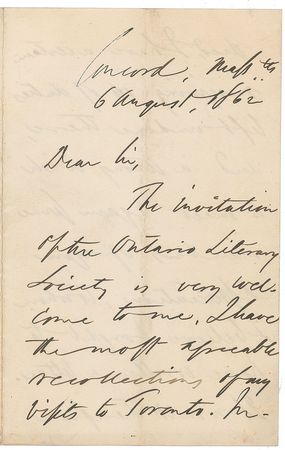 Concord, Mass.tts
6 August, 1862
Dear Sir,
The invitation
of the Ontario Literary
Society is very wel-
come to me. I have
the most agreeable
recollections of my
visits to Toronto. In-